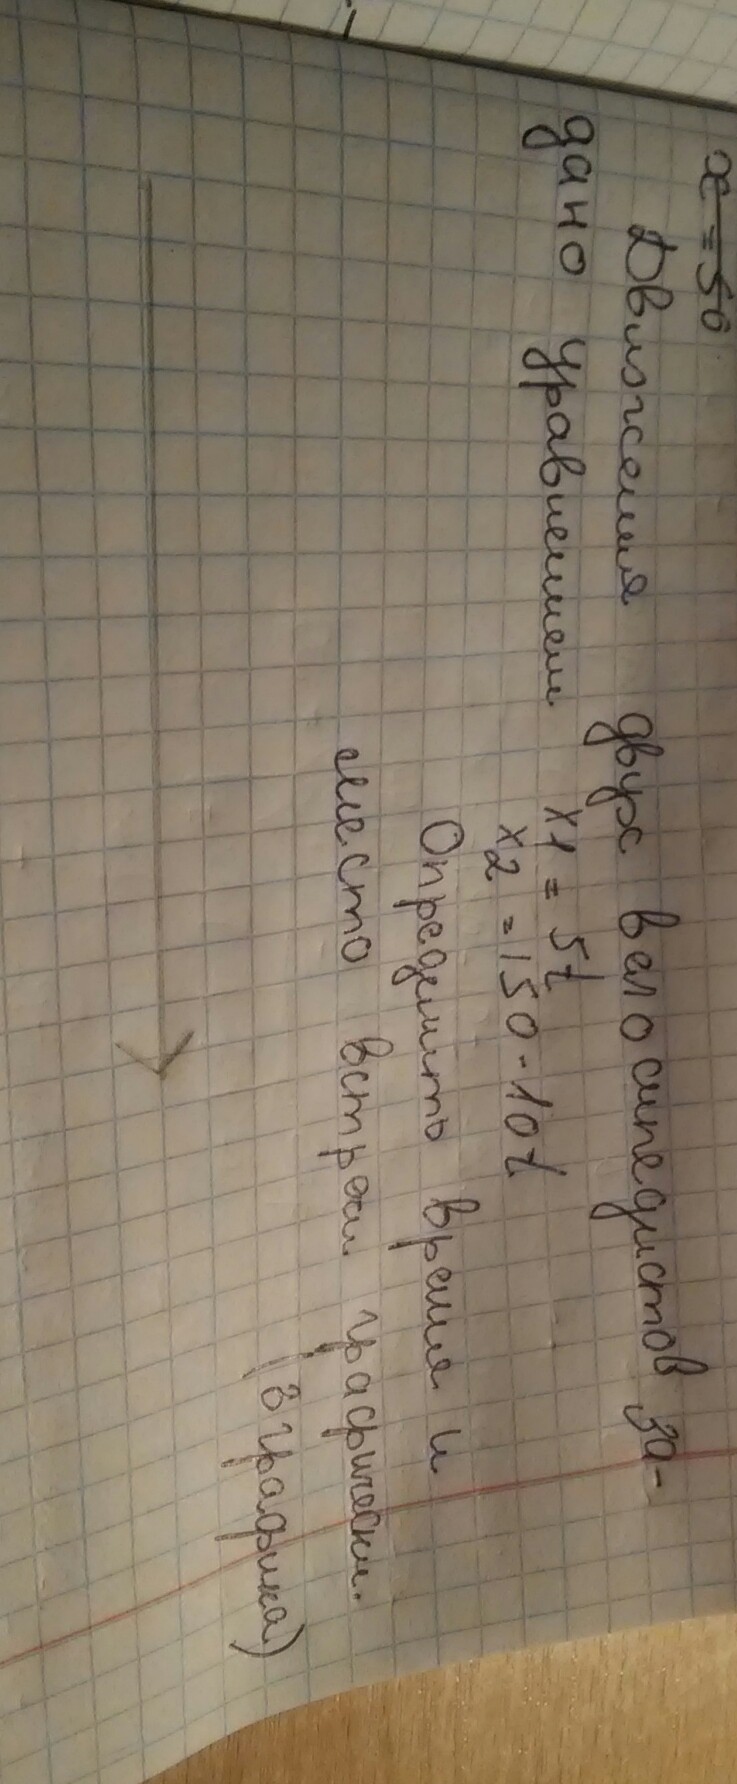 x = 50
Движения двух велосипедистов за-
дано уравнением x1 = 5t
x2 = 150-10t
Определить время и
место встречи графически.
(3 графика)